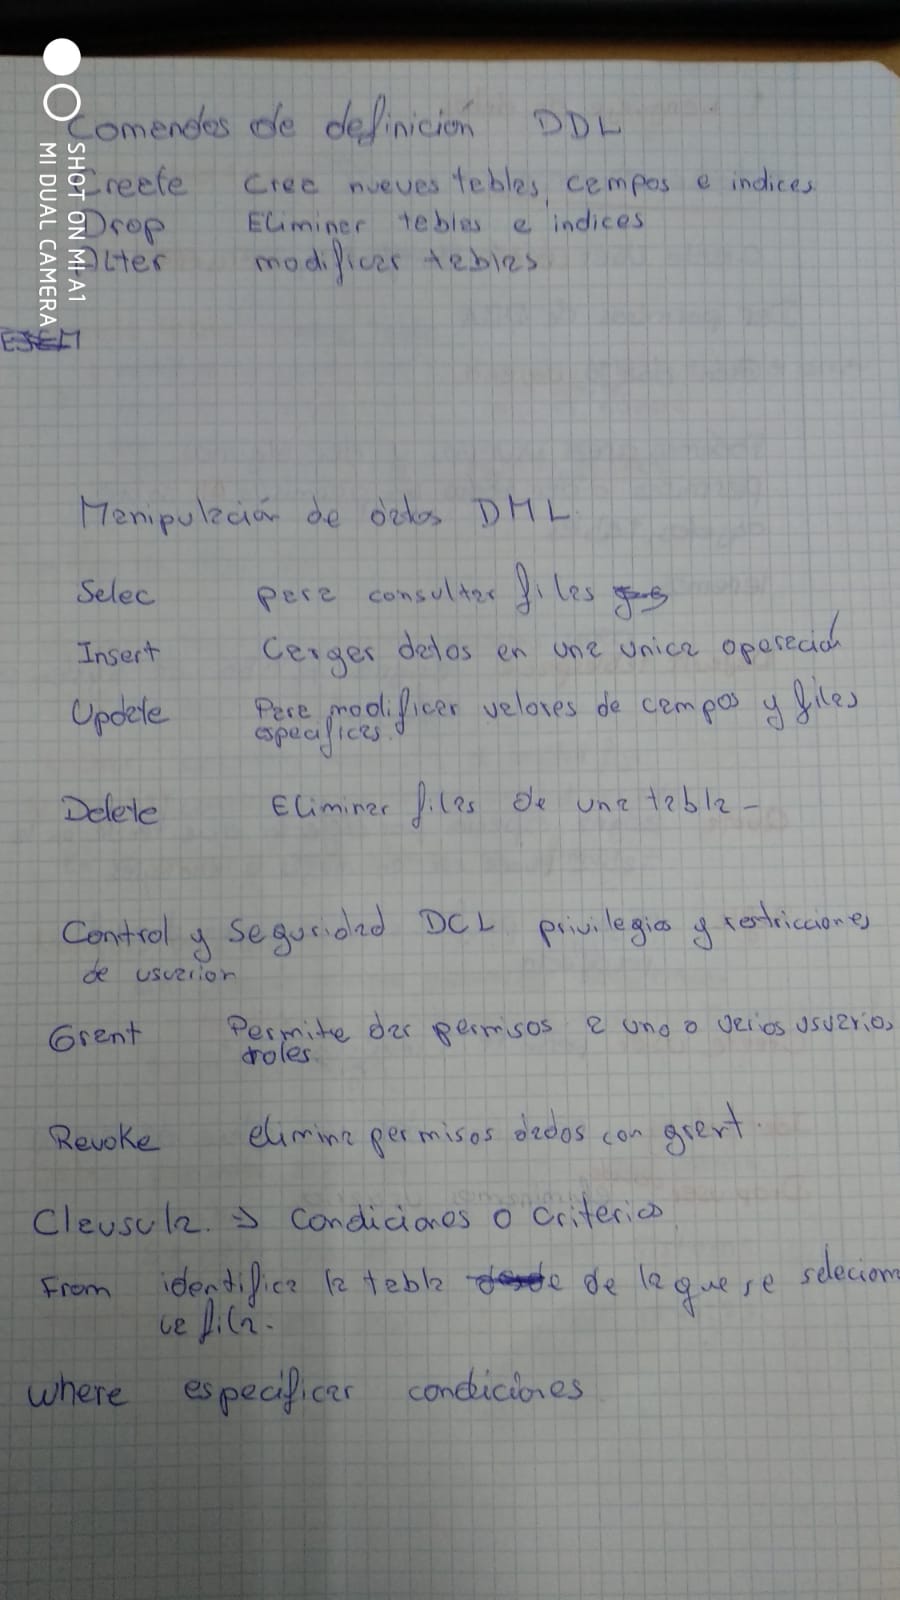 SHOT ON MI A1
MI DUAL CAMERA
Comandos de definición DDL
Create Crea nuevas tablas, campos e indices
Drop Eliminar tablas e indices
Alter modificar tablas
Manipulación de datos DML
Selec para consultar filas
Insert Cargar datos en una unica operación
Update Para modificar valores de campos y filas
especificas.
Delete Eliminar filas de una tabla -
Control y Seguridad DCL privilegios y restricciones
de usuarior
Grant Permite dar permisos a uno o varios usuarios
roles.
Revoke elimina permisos dados con grant.
Clausula. => Condiciones o Criterios
From identifica la tabla de la que se seleciona
la fila.
Where especificar condiciones